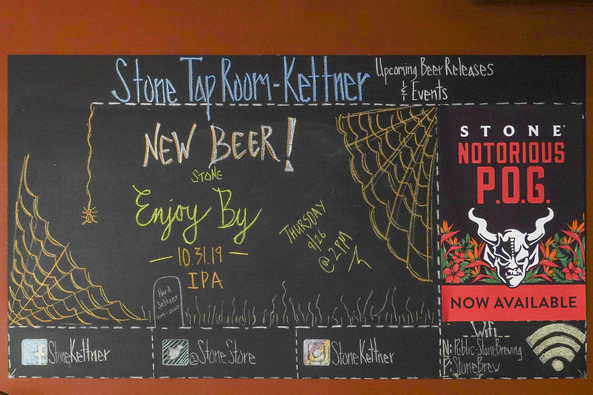 Stone Tap Room-Kettner
Upcoming Beer Releases
& Events
NEW BEER!
STONE
Enjoy By
— 10.31.19 —
IPA
THURSDAY
9/26
@ 2PM
Hard
Seltzer
STONE
NOTORIOUS
P.O.G.
NOW AVAILABLE
f StoneKettner
@StoneStore
StoneKettner
Wifi
N: Public-StoneBrewing
P: StoneBrew